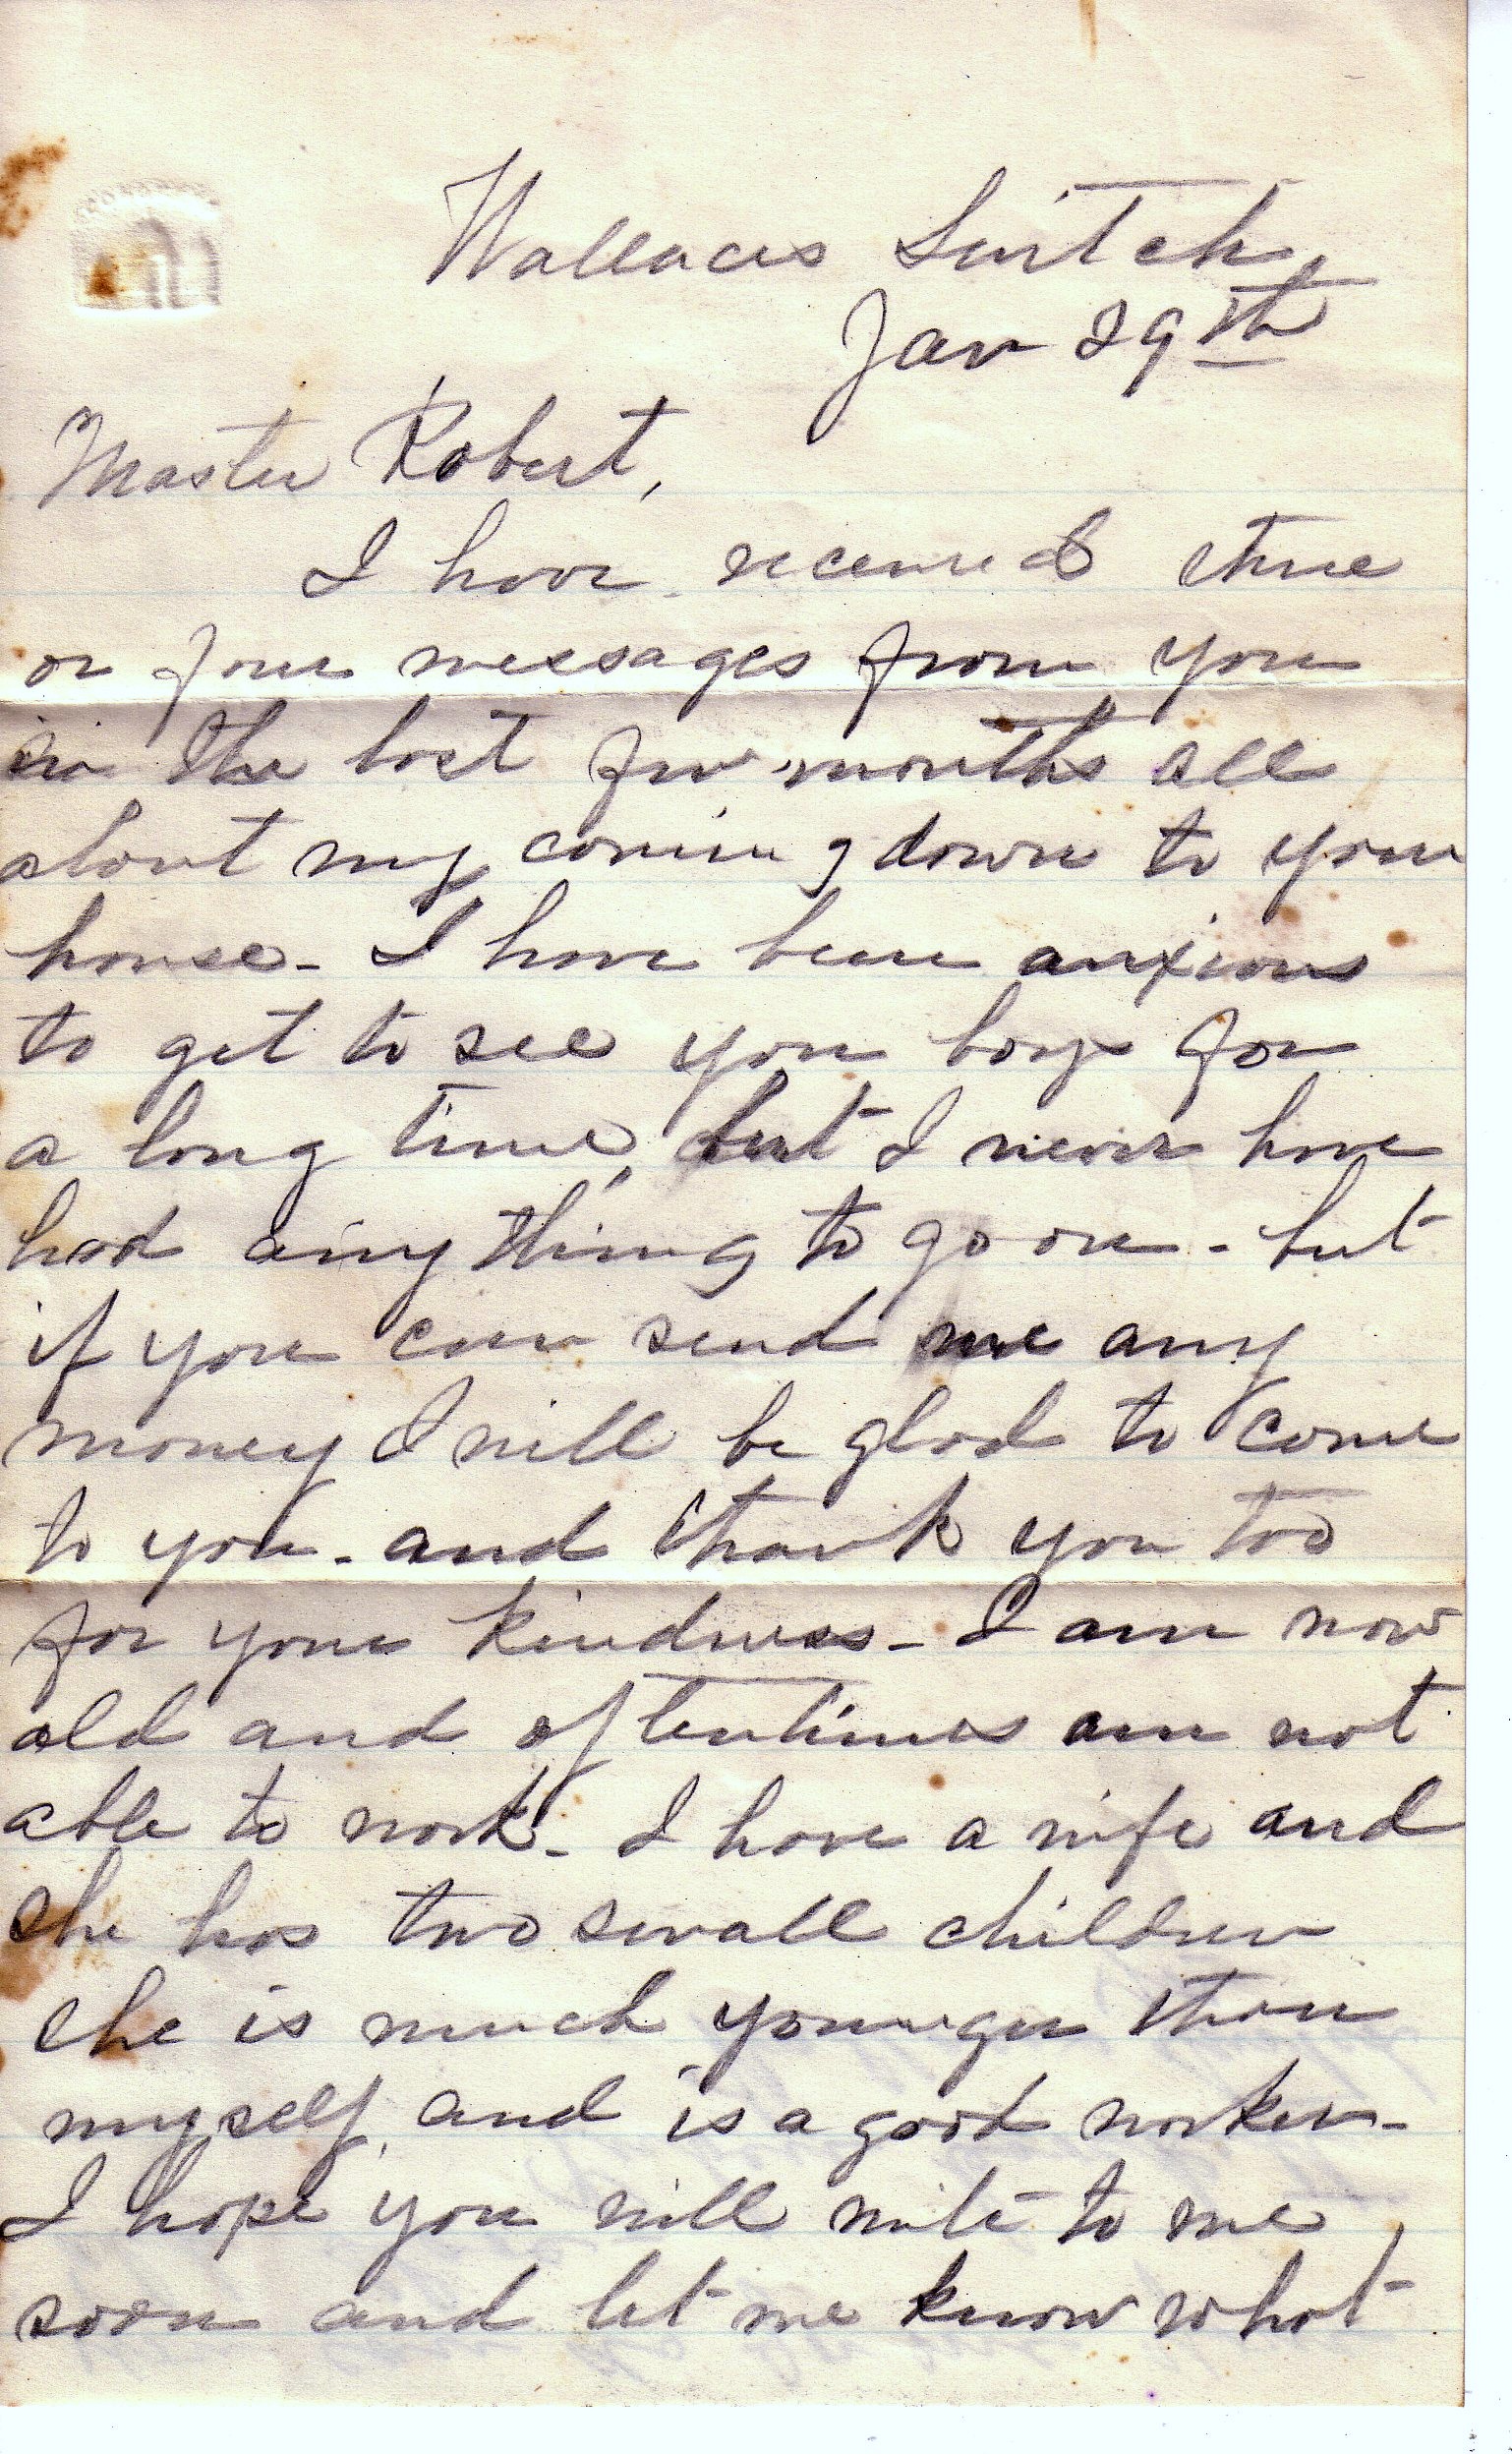 Wallaces Switch,
Jan 29th
Master Robert,
I have received three
or four messages from you
in the last few months all
about my coming down to your
house - I have been anxious
to get to see you boys for
a long time, but I never have
had any thing to go on - but
if you can send me any
money I will be glad to come
to you - and thank you too
for your kindness - I am now
old and oftentimes am not
able to work - I have a wife and
she has two small children
she is much younger than
myself, and is a good worker -
I hope you will write to me
soon and let me know what